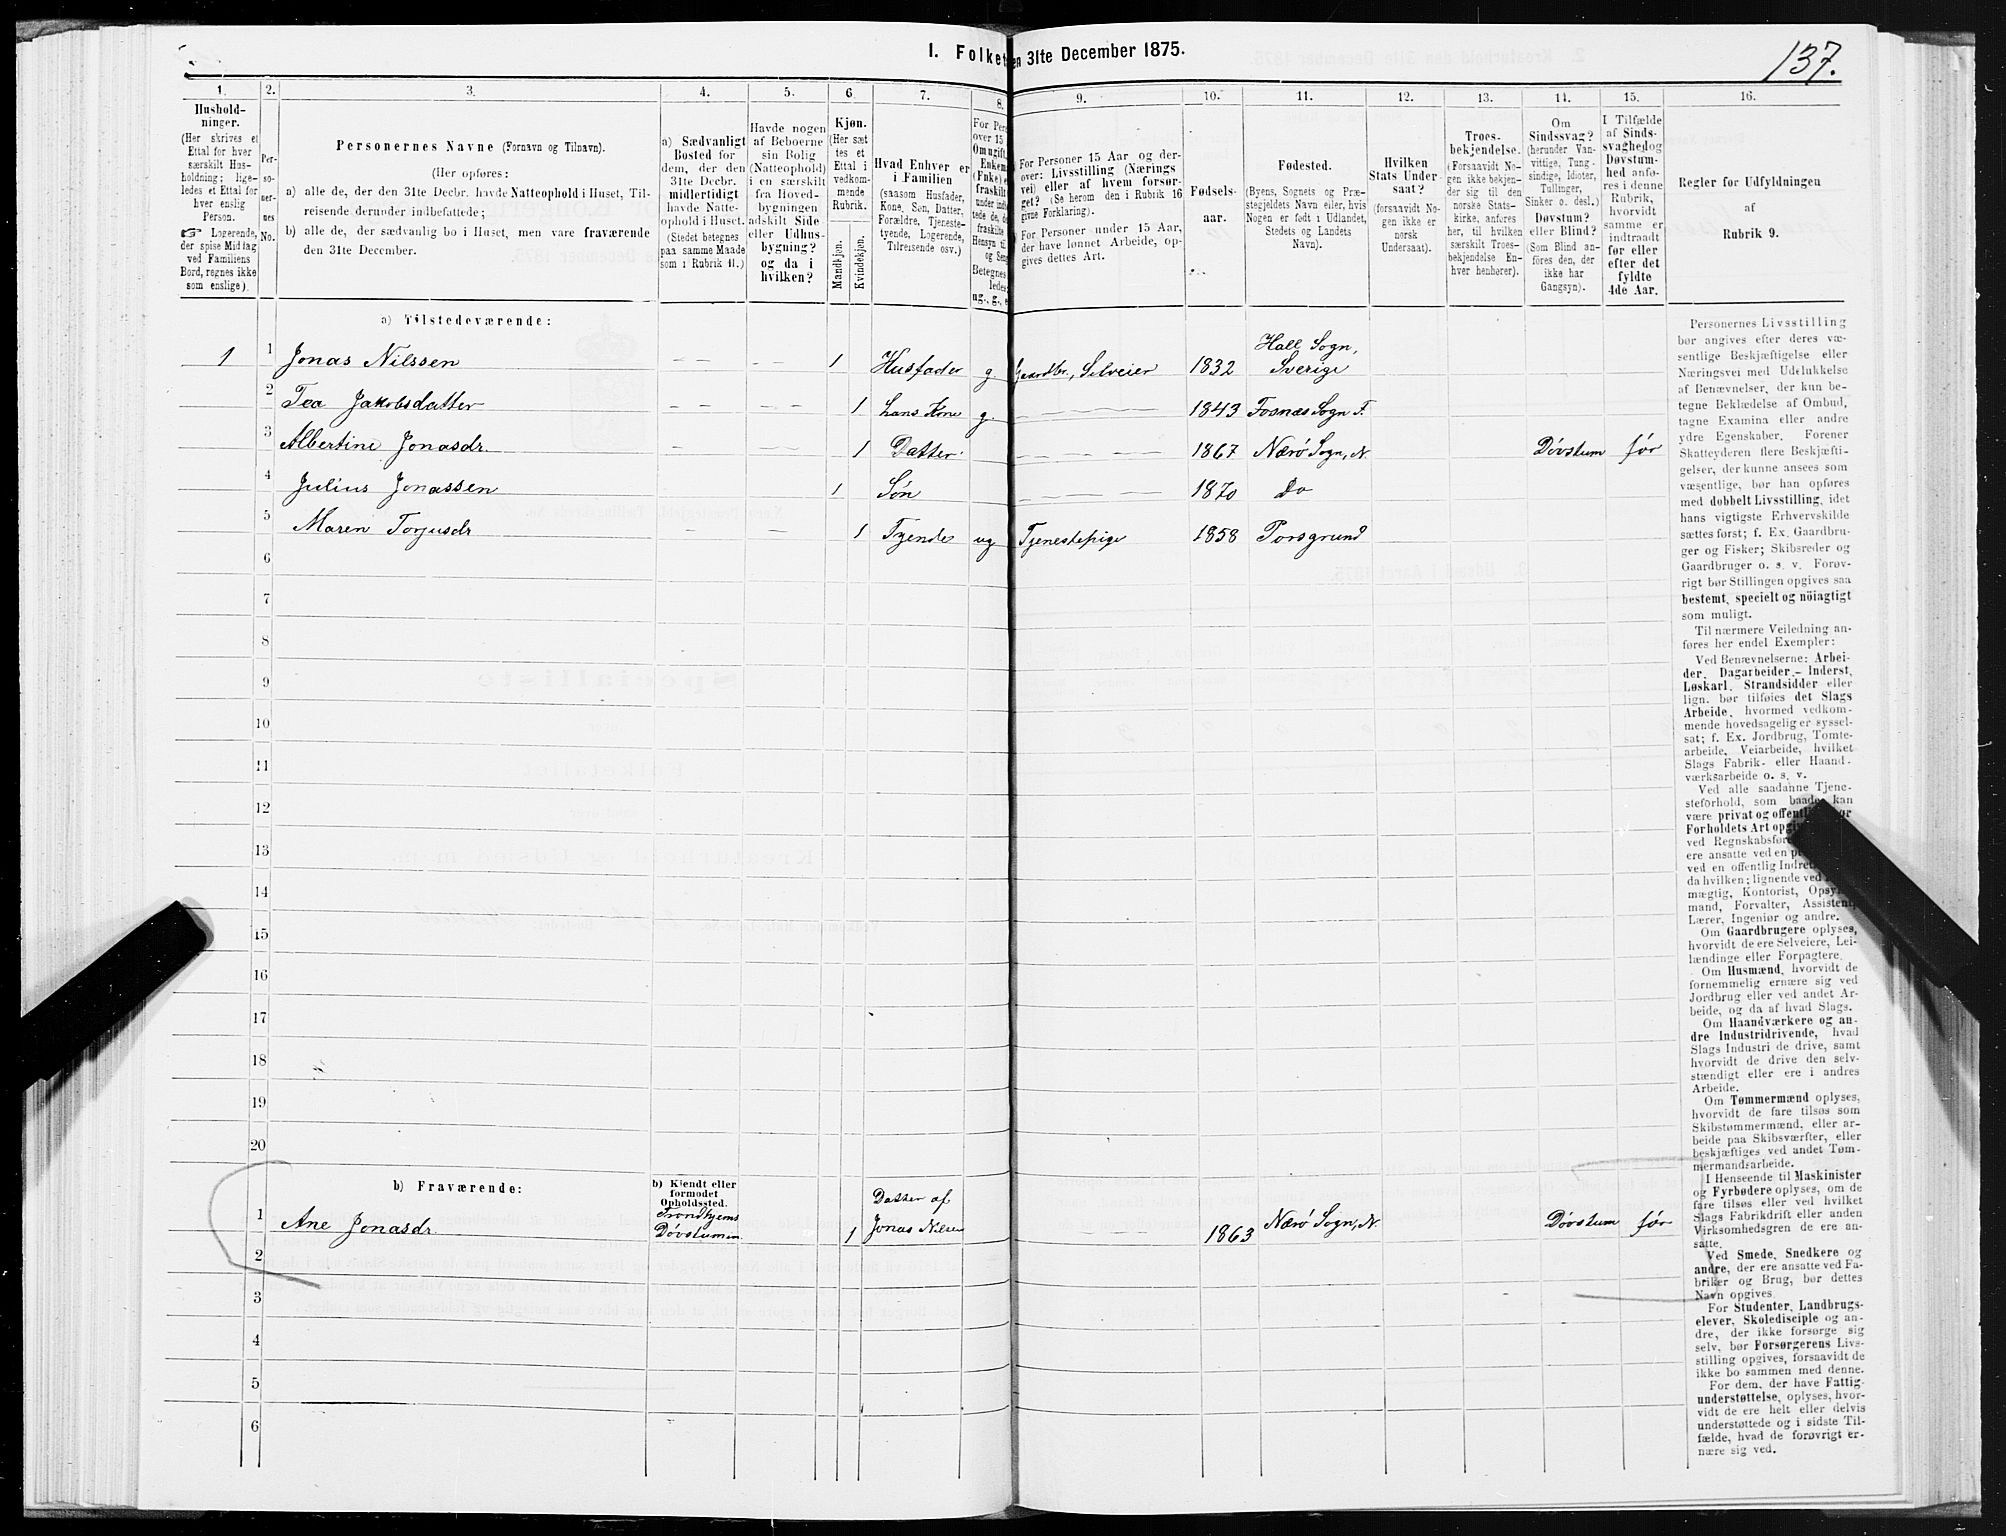 I. Folket
en 31te December 1875.
137.
1.
2.
3.
4.
5.
6.
7.
8.
9.
10.
11.
12.
13.
14.
15.
16.
Hushold-
ninger.
(Her skrives et
Ettal for hver
særskilt Hus-
holdning; lige-
ledes et Ettal for
hver enslig
Person.
☞ Logerende,
der spise Middag
ved Familiens
Bord, regnes ikke
som enslige).
Per-
so-
ner-
nes
No.
Personernes Navne (Fornavn og Tilnavn).
(Her opføres:
a) alle de, der den 31te Decbr. havde Natteophold i Huset, Til-
reisende derunder indbefattede;
b) alle de, der sædvanlig bo i Huset, men vare fraværende
den 31te December.
a) Sædvanligt
Bosted for
dem, der den
31te Decbr.
midlertidigt
havde Natte-
ophold i Huset.
(Stedet betegnes
paa samme Maade
som i Rubrik 11.)
Havde nogen
af Beboerne
sin Bolig
(Natteophold)
i en særskilt
fra Hoved-
bygningen
adskilt Side-
eller Udhus-
bygning?
og da i
hvilken?
Kjøn.
(Her sæt-
tes et
Ettal i
vedkom-
mende
Rubrik.
Mandkjøn.
Kvindekjøn.
Hvad Enhver er
i Familien
(saasom Husfader,
Kone, Søn, Datter,
Forældre, Tjeneste-
tyende, Logerende,
Tilreisende osv.)
For Pers
over 15
Om ugift,
Enkem
(Fnke) e
fraskilt
under indb
tede de, de
fraskilte
Hensyn til
og Sen
Betegnes
ledes
ug., g., e
For Personer 15 Aar og der-
over: Livsstilling (Nærings
vei) eller af hvem forsør-
get? (Se herom den i Rubrik 16
givne Forklaring).
For Personer under 15 Aar,
der have lønnet Arbeide, op-
gives dettes Art.
Fødsels-
aar.
Fødested.
(Byens, Sognets og Præ-
stegjeldets Navn eller, hvis
Nogen er født i Udlandet,
Stedets og Landets
Navn).
Hvilken
Stats Under-
saat?
(forsaavidt No-
gen ikke er
norsk
Undersaat).
Troes-
bekjendelse.
(Forsaavidt No-
gen ikke bekjen-
der sig til den
norske Stats-
kirke, anføres
her, til hvilken
særskilt Troes-
bekjendelse En-
hver henhører).
Om
Sindssvag?
(herunder Van-
vittige, Tung-
sindige, Idioter,
Tullinger,
Sinker o. desl.)
Døvstum?
eller Blind?
(Som Blind an-
føres den, der
ikke har
Gangsyn).
I Tilfælde
af Sinds-
svaghed og
Døvstum-
hed anfø-
res i denne
Rubrik,
hvorvidt
samme er
indtraadt
før eller
efter det
fyldte
4de Aar.
Regler for Udfyldningen
af
Rubrik 9.
a) Tilstedeværende:
1 1 Jonas Nilssen 1 Husfader g. Gaardbr., Selveier 1832 Hall Sogn, Sverige
2 Tea Jakobsdatter 1 hans Kone g. 1843 Fosnæs Sogn F.
3 Albertine Jonasdr. 1 Datter 1867 Nærö Sogn, N. Døvstum før
4 Julius Jonassen 1 Søn 1870 Do
5 Maren Torjusdr 1 Tyende ug Tjenestepige 1858 Porsgrund
6
7
8
9
10
11
12
13
14
15
16
17
18
19
20
b) Fraværende:
b) Kjendt eller
formodet
Opholdssted.
1 Ane Jonasdr. Trondhjems Døvstumin. 1 Datter af Jonas Nilsen 1863 Nærö Sogn, N. Døvstum før
2
3
4
5
6
Personernes Livsstilling
bør angives efter deres væ-
sentlige Beskjæftigelse eller
Næringsvei med Udelukkelse
af Benævnelser, der kun be-
tegne Beklædelse af Ombud,
tagne Examina eller andre
ydre Egenskaber. Forener
Skatteyderen flere Beskjæfti-
gelser, der kunne ansees som
væsentlige, bør han opføres
med dobbelt Livsstilling, idet
hans vigtigste Erhvervskilde
sættes først; f. Ex. Gaardbru-
ger og Fisker; Skibsreder og
Gaardbruger o. s. v. Forøv-
rigt bør Stillingen opgives saa
bestemt, specielt og nöiagtigt
som muligt.
Til nærmere Veiledning an-
føres her endel Exempler:
Ved Benævnelserne: Arbei-
der, Dagarbeider - Inderst,
Løskarl, Strandsidder eller
lign. bør tilføies det Slags
Arbeide, hvormed vedkom-
mende hovedsagelig er syssel-
sat; f. Ex. Jordbrug, Tomte-
arbeide, Veiarbeide, hvilket
Slags Fabrik- eller Haand-
værksarbeide o. s. v.
Ved alle saadanne Tjene-
steforhold, som baade kan
være privat og offentlig
Forholdets Art
ved
ere ansatte ved en
ved en offentlig
da hvilken; lignende ved
mægtig, Kontorist,
mand, Forvalter, Assistent,
Lærer, Ingeniør og andre.
Om Gaardbrugere oplyses,
hvorvidt de ere Selveiere, Lei-
lændinge eller Forpagtere.
Om Husmænd, hvorvidt de
fornemmelig ernære sig ved
Jordbrug eller ved andet Ar-
beide, og da af hvad Slags.
Om Haandværkere og an-
dre Industridrivende, hvad
Slags Industri de drive, samt
hvorvidt de drive den selv-
stændigt eller ere i andres
Arbeide.
Om Tømmermænd oplyses,
hvorvidt de fare tilsøs som
Skibstømmermænd, eller ar-
beide paa Skibsværfter, eller
beskjæftiges ved andet Tøm-
mermandsarbeide.
I Henseende til Maskinister
og Fyrbødere oplyses, om de
fare tilsøs eller ved hvilket
Slags Fabrikdrift eller anden
Virksomhedsgren de ere an-
satte.
Ved Smede, Snedkere og
andre, der ere ansatte ved Fa-
briker og Brug, bør dettes
Navn opgives.
For Studenter, Landbrugs-
elever, Skoledisciple og an-
dre, der ikke forsørge sig
selv, bør Forsørgerens Livs-
stilling opgives, forsaavidt de
ikke bo sammen med denne.
For dem, der have Fattig-
understøttelse, oplyses, hvor-
vidt de ere helt eller delvis
understøttede og i sidste Til-
fælde, hvad de forøvrigt er-
nære sig ved.